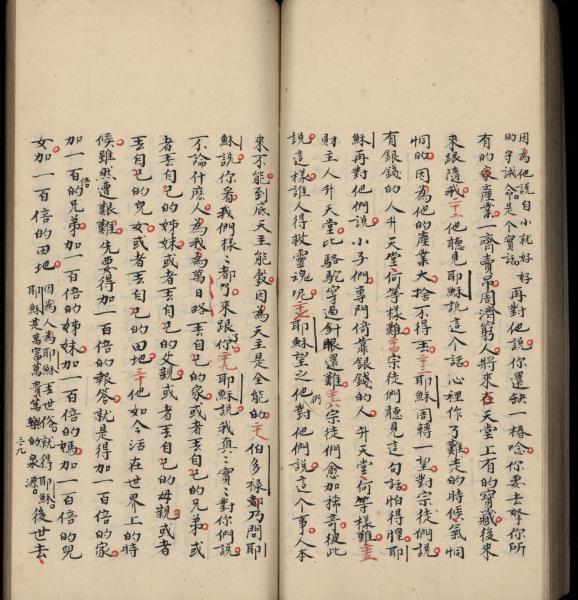 因為他說自小就好好
的守誡命。是个實話。
再對他說。你還缺一樁。唸你要去孥你所
有的家產業。一齊賣吊周濟窮人。將來在天堂上有的寶藏。後來
來跟隨我。二十二他聽見耶穌說這个話。心裡作了難。走的時候氣恫
恫的。因為他的產業大。捨不得丟。二十三耶穌周轉一望。對宗徒們說
有銀錢的人升天堂。何等樣難。二十四宗徒們聽見這句話。怕得狠。耶
穌再對他們說。小子們。專門倚靠銀錢的人。升天堂。何等樣難。二十五
財主人升天堂。比駱駝穿過針眼還難。二十六宗徒們愈加稀奇。彼此
說。這樣誰人得救靈魂呢。二十七耶穌望之他們對他們說。這个事人本
來不能到底天主能彀。因為天主是全能的。二十八伯多樣都乃問耶
穌說。你看我們樣樣都丟了來跟你。二十九耶穌說。我真真實實對你們說。
不論什麽人為我為萬日略。丟自己的家。或者丟自己的兄弟。或
者丟自己的姊妹。或者丟自己的父親。或者丟自己的母親。或者
丟自己的兒女。或者丟自己的田地。三十他如今活在世界上的時
候。雖然遭艱難。先要得加一百倍的報答。就是得加一百倍的家。
加一百倍的兄弟。加一百倍的姊妹。加一百倍的媽。加一百倍的兒
女。加一百倍的田地。
因為人為耶穌丟世俗。就得耶穌。
耶穌是萬富萬貴萬樂的泉源。
後世去
三九